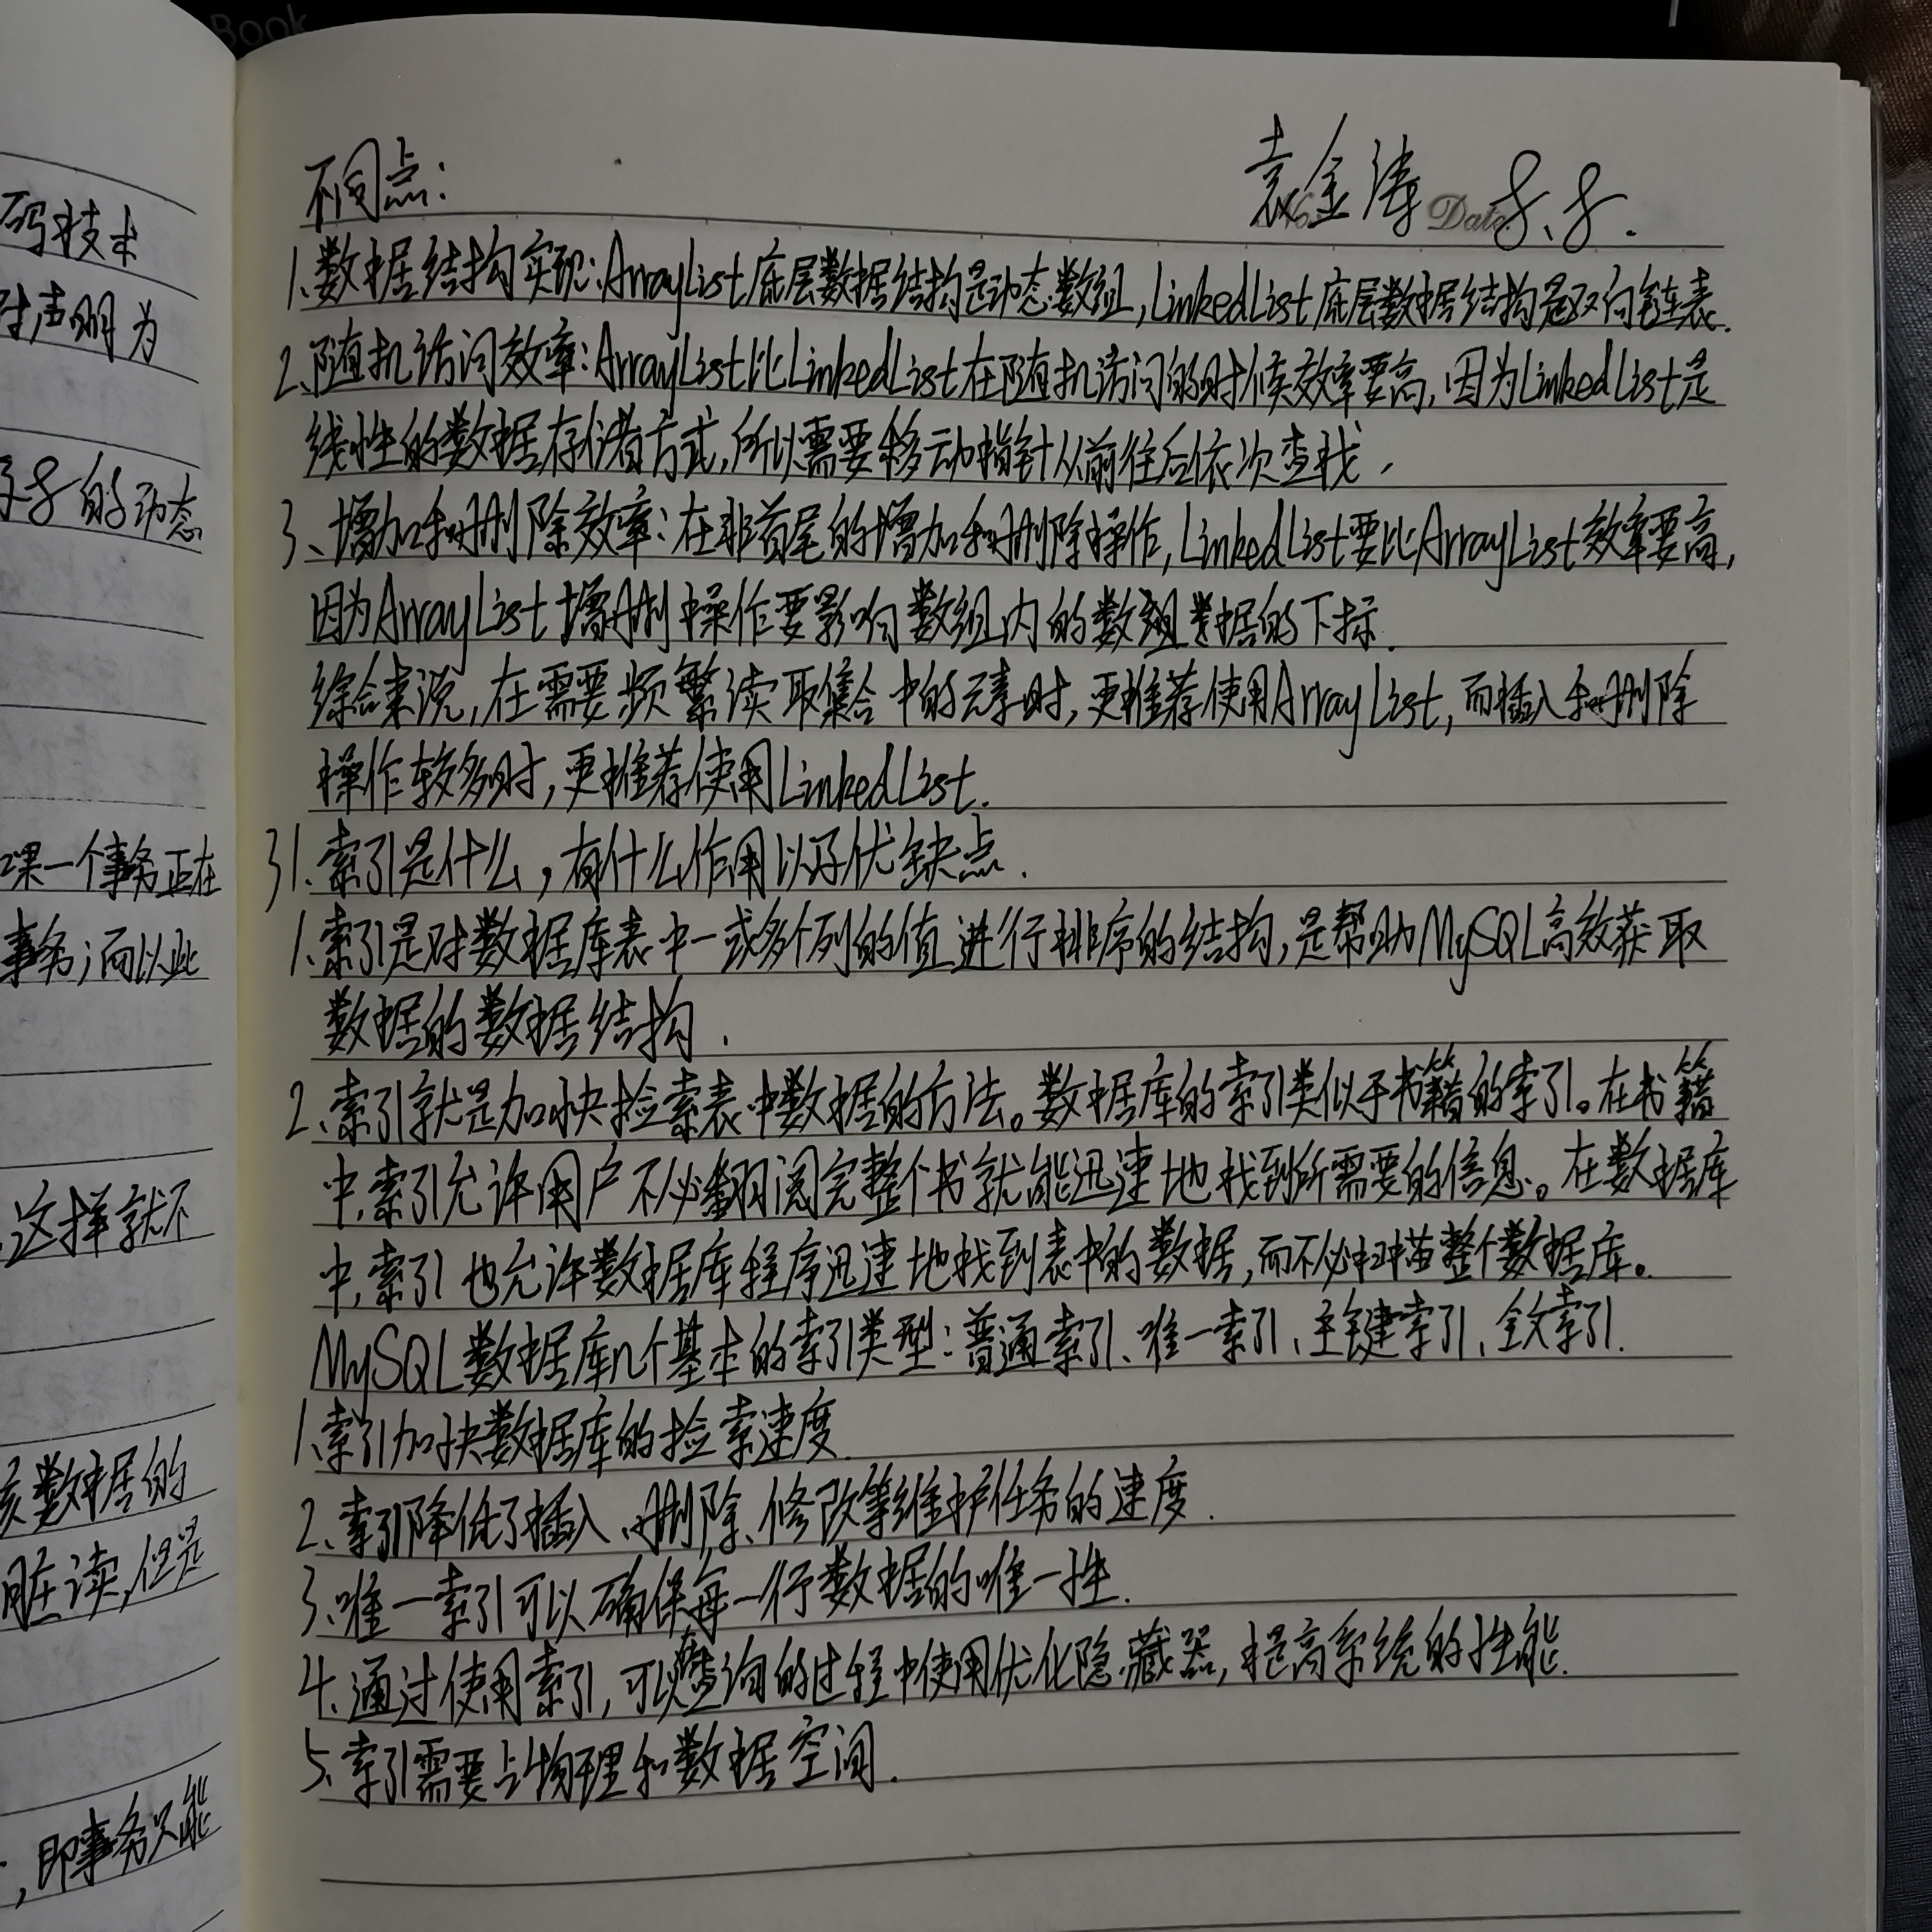 Book
码技术
时声明为
子的动态
果一个事务正在
事务;而以此
这样就不
该数据的
间在读,但是
,即事务只能
袁金涛 Date 8.8.
不同点:
1.数据结构实现:ArrayList底层数据结构是动态数组,LinkedList底层数据结构是双向链表.
2.随机访问效率:ArrayList比LinkedList在随机访问的时候效率要高,因为LinkedList是
线性的数据存储方式,所以需要移动指针从前往后依次查找.
3、增加和删除效率:在非首尾的增加和删除操作,LinkedList要比ArrayList效率要高,
因为ArrayList增删操作要影响数组内的数组数据的下标.
综合来说,在需要频繁读取集合中的元素时,更推荐使用ArrayList,而插入和删除
操作较多时,更推荐使用LinkedList.
31.索引是什么,有什么作用以及优缺点.
1.索引是对数据库表中一或多个列的值进行排序的结构,是帮助MySQL高效获取
数据的数据结构.
2.索引就是加快检索表中数据的方法。数据库的索引类似于书籍的索引。在书籍
中,索引允许用户不必翻阅完整个书就能迅速地找到所需要的信息。在数据库
中,索引也允许数据库程序迅速地找到表中的数据,而不必扫描整个数据库。
MySQL数据库几个基本的索引类型:普通索引、唯一索引、主键索引、全文索引.
1.索引加快数据库的检索速度
2.索引降低了插入、删除、修改等维护任务的速度.
3.唯一索引可以确保每一行数据的唯一性.
4.通过使用索引,可以在查询的过程中使用优化隐藏器,提高系统的性能.
5.索引需要占物理和数据空间.